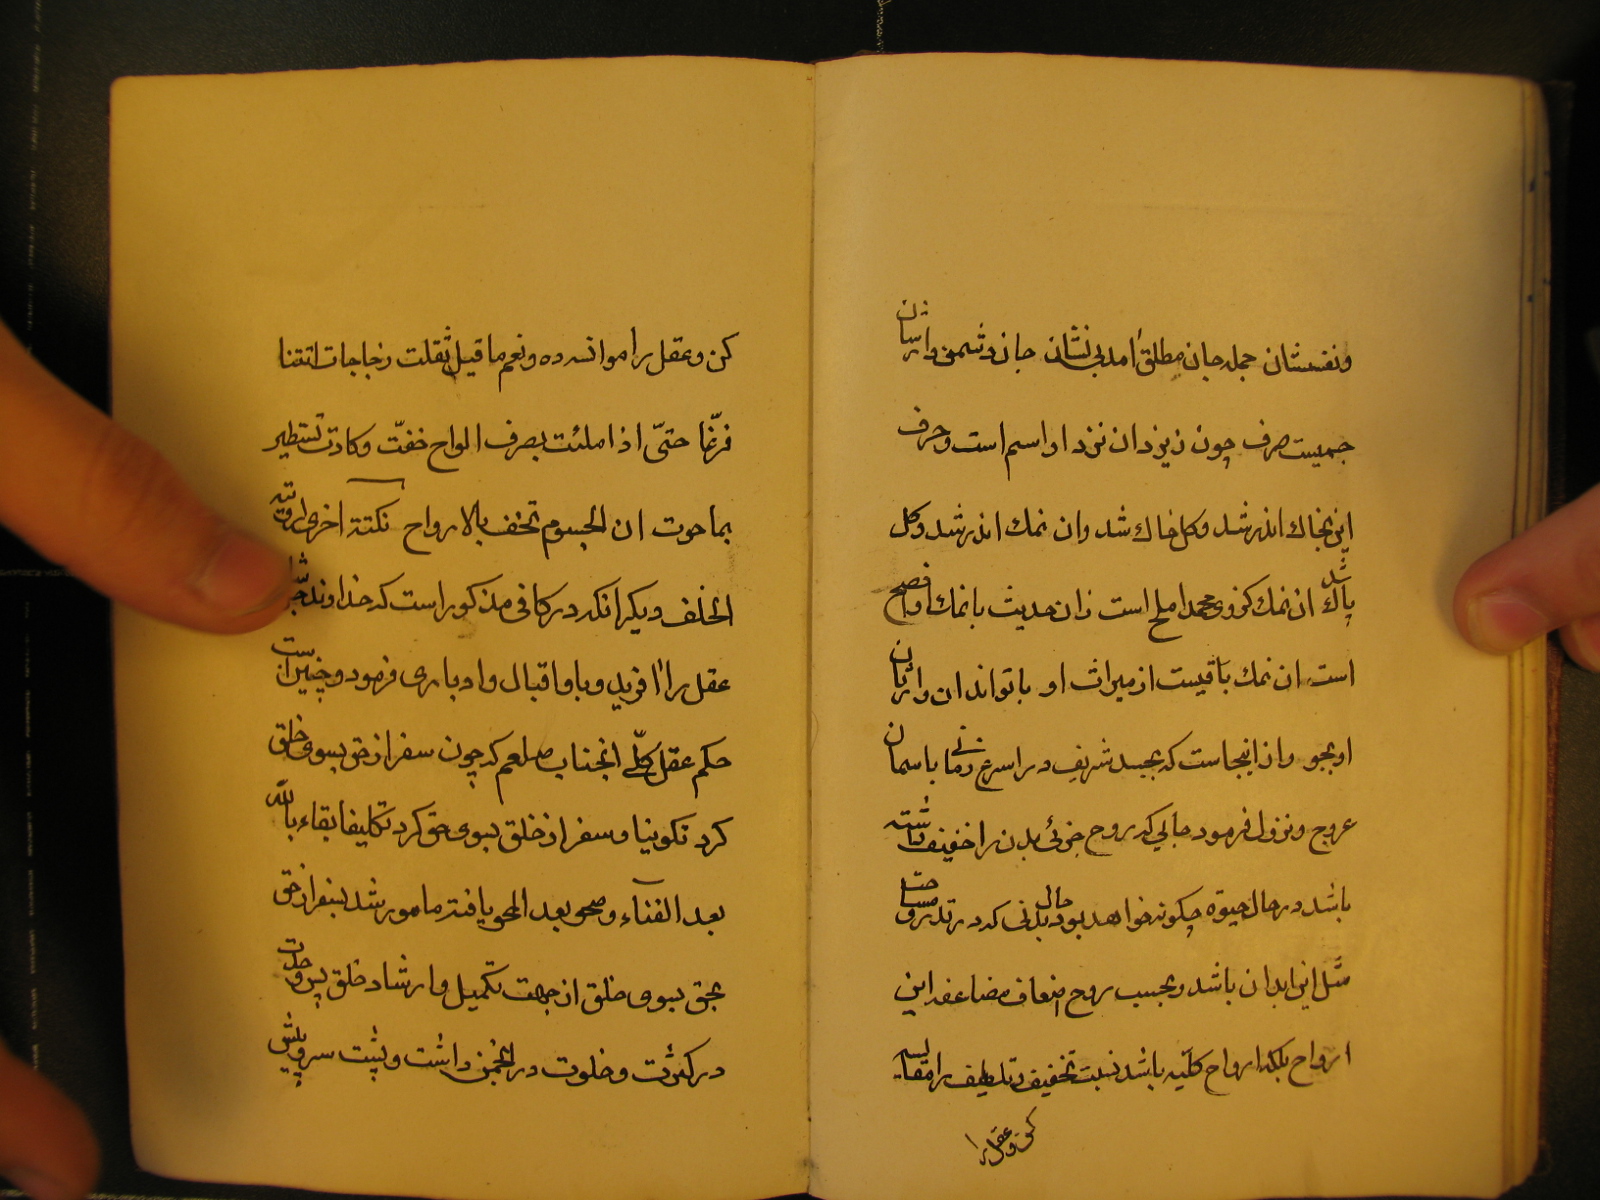 ونفسشان جمله جان مطلق امد بی نشان جان دشمن دارشان
جسمیست صرف چون زیزدان نزد او اسم است وحرف
این بخاك اندر شد وکل خاك شد وان نمك اندر شد وکل
پاك شد ان نمك کزوی محمد املح است زان حدیث با نمك او افصح
است ان نمك باقیست از میراث او با تواند ان وارثان
او بجو واز اینجاست که بجسد شریف در اسرع زمانی باسمان
عروج ونزول فرمود جالی که روح جزئی بدن را خفیف داشته
باشد در حال حیوة چکونه خواهد بود حال بدنی که در
مثل این ابدان باشد وبحسب روح اضعاف مضاعفه این
ارواح بلکه ارواح کلیه باشد نسبت تخفیف وتلطیف را مقایسه
کن وعقل را
کن وعقل را موانسه ده ونعم ما قیل ثقلت زجاجات اتتنا
فرغا حتی اذا ملئت بصرف الراح خفت وکادت تستطیر
بما حوت ان الجسوم تخف بالارواح نکتة اخری
الخلف دیکر انکه در کافی مذکور است که خداوند
عقل را افرید وباو اقبال وادباری فرمود وچنین است
حکم عقل کلی انجناب صلعم که چون سفر از حق بسوی خلق
کرد تکوینا وسفر از خلق بسوی حق کرد تکلیفا بقاء بالله
بعد الفناء وصحو بعد المحو یافته مامور شد بسفر از حق
بحق بسوی خلق از جهت تکمیل وارشاد خلق پس وحدت
در کثرت وخلوت در انجمن داشت وپشت سر وپیش